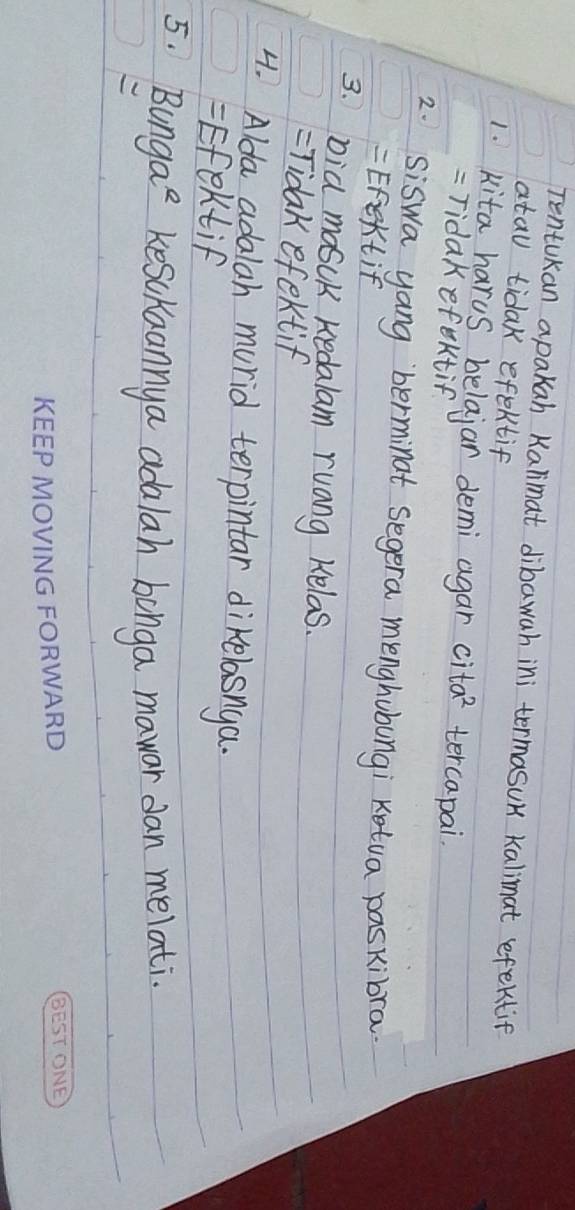 Tentukan apakah kalimat dibawah ini termasuk kalimat efektif
atau tidak efektif
1. Kita harus belajar demi agar cita² tercapai.
= Tidak efektif
2. Siswa yang berminat segera menghubungi ketua paskibra.
= Efektif
3. Dia masuk kedalam ruang kelas.
= Tidak efektif
4. Alda adalah murid terpintar dikelasnya.
= Efektif
5. Bunga² kesukaannya adalah bunga mawar dan melati.
=
KEEP MOVING FORWARD
BEST ONE